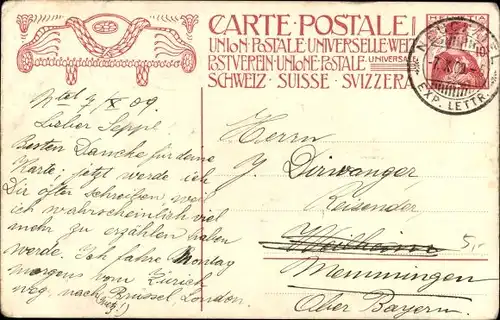 CARTE POSTALE
UNION POSTALE UNIVERSELLE WELT
POSTVEREIN UNIONE POSTALE UNIVERSALE
SCHWEIZ SUISSE SVIZZERA
HELVETIA
10
EXP. LETTR.
Ntel 7/X 09
Lieber Seppl
Besten Dancke für deine
Karte, jetzt werde ich
Dir öfter schreiben, weil
ich wahrscheinlich viel
mehr zu erzählen haben
werde. Ich fahre Montag
morgens vom Zürich
weg, nach Brüssel, London.
Herrn
J. Dirwanger
Reisender
Weilheim
5,-
Memmingen
Ober Bayern.